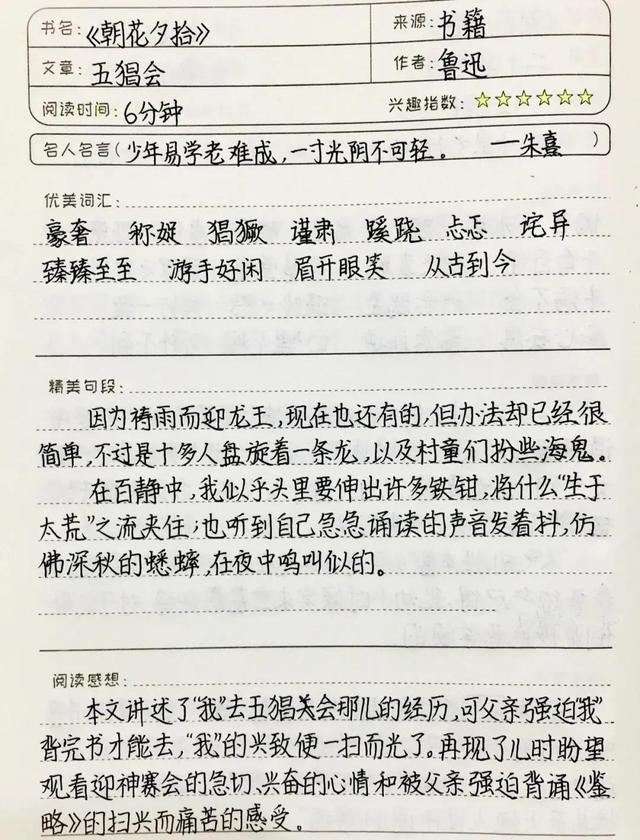 书名:《朝花夕拾》
来源:书籍
文章:五猖会
作者:鲁迅
阅读时间:6分钟
兴趣指数:☆☆☆☆☆☆
名人名言(少年易学老难成,一寸光阴不可轻。 ——朱熹 )
优美词汇:
豪奢 称娖 猖獗 谨肃 蹊跷 忐忑 诧异
臻臻至至 游手好闲 眉开眼笑 从古到今
精美句段:
因为祷雨而迎龙王,现在也还有的,但办法却已经很
简单,不过是十多人盘旋着一条龙,以及村童们扮些海鬼。
在百静中,我似乎头里要伸出许多铁钳,将什么“生于
太荒”之流夹住;也听到自己急急诵读的声音发着抖,仿
佛深秋的蟋蟀,在夜中鸣叫似的。
阅读感想:
本文讲述了“我”去五猖关会那儿的经历,可父亲强迫“我”
背完书才能去,“我”的兴致便一扫而光了。再现了儿时盼望
观看迎神赛会的急切、兴奋的心情和被父亲强迫背诵《鉴
略》的扫兴而痛苦的感受。